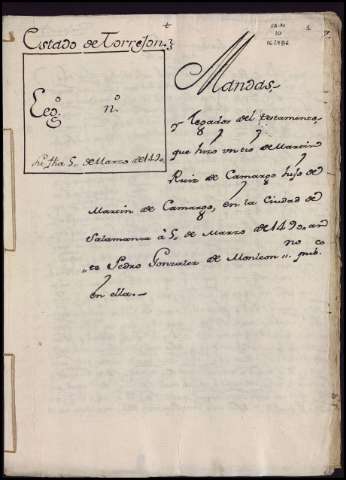 Estado de Torrejon.
Leg.º n.º
fha 5. de Marzo de 1490.
Mandas,
y legados del testamento,
que hizo un tio de Martin
Ruiz de Camargo hijo de
Martin de Camargo, en la Ciudad de
Salamanca à 5. de Marzo de 1490. an
te Pedro Gonzalez de Monleon no pub.co
en ella.